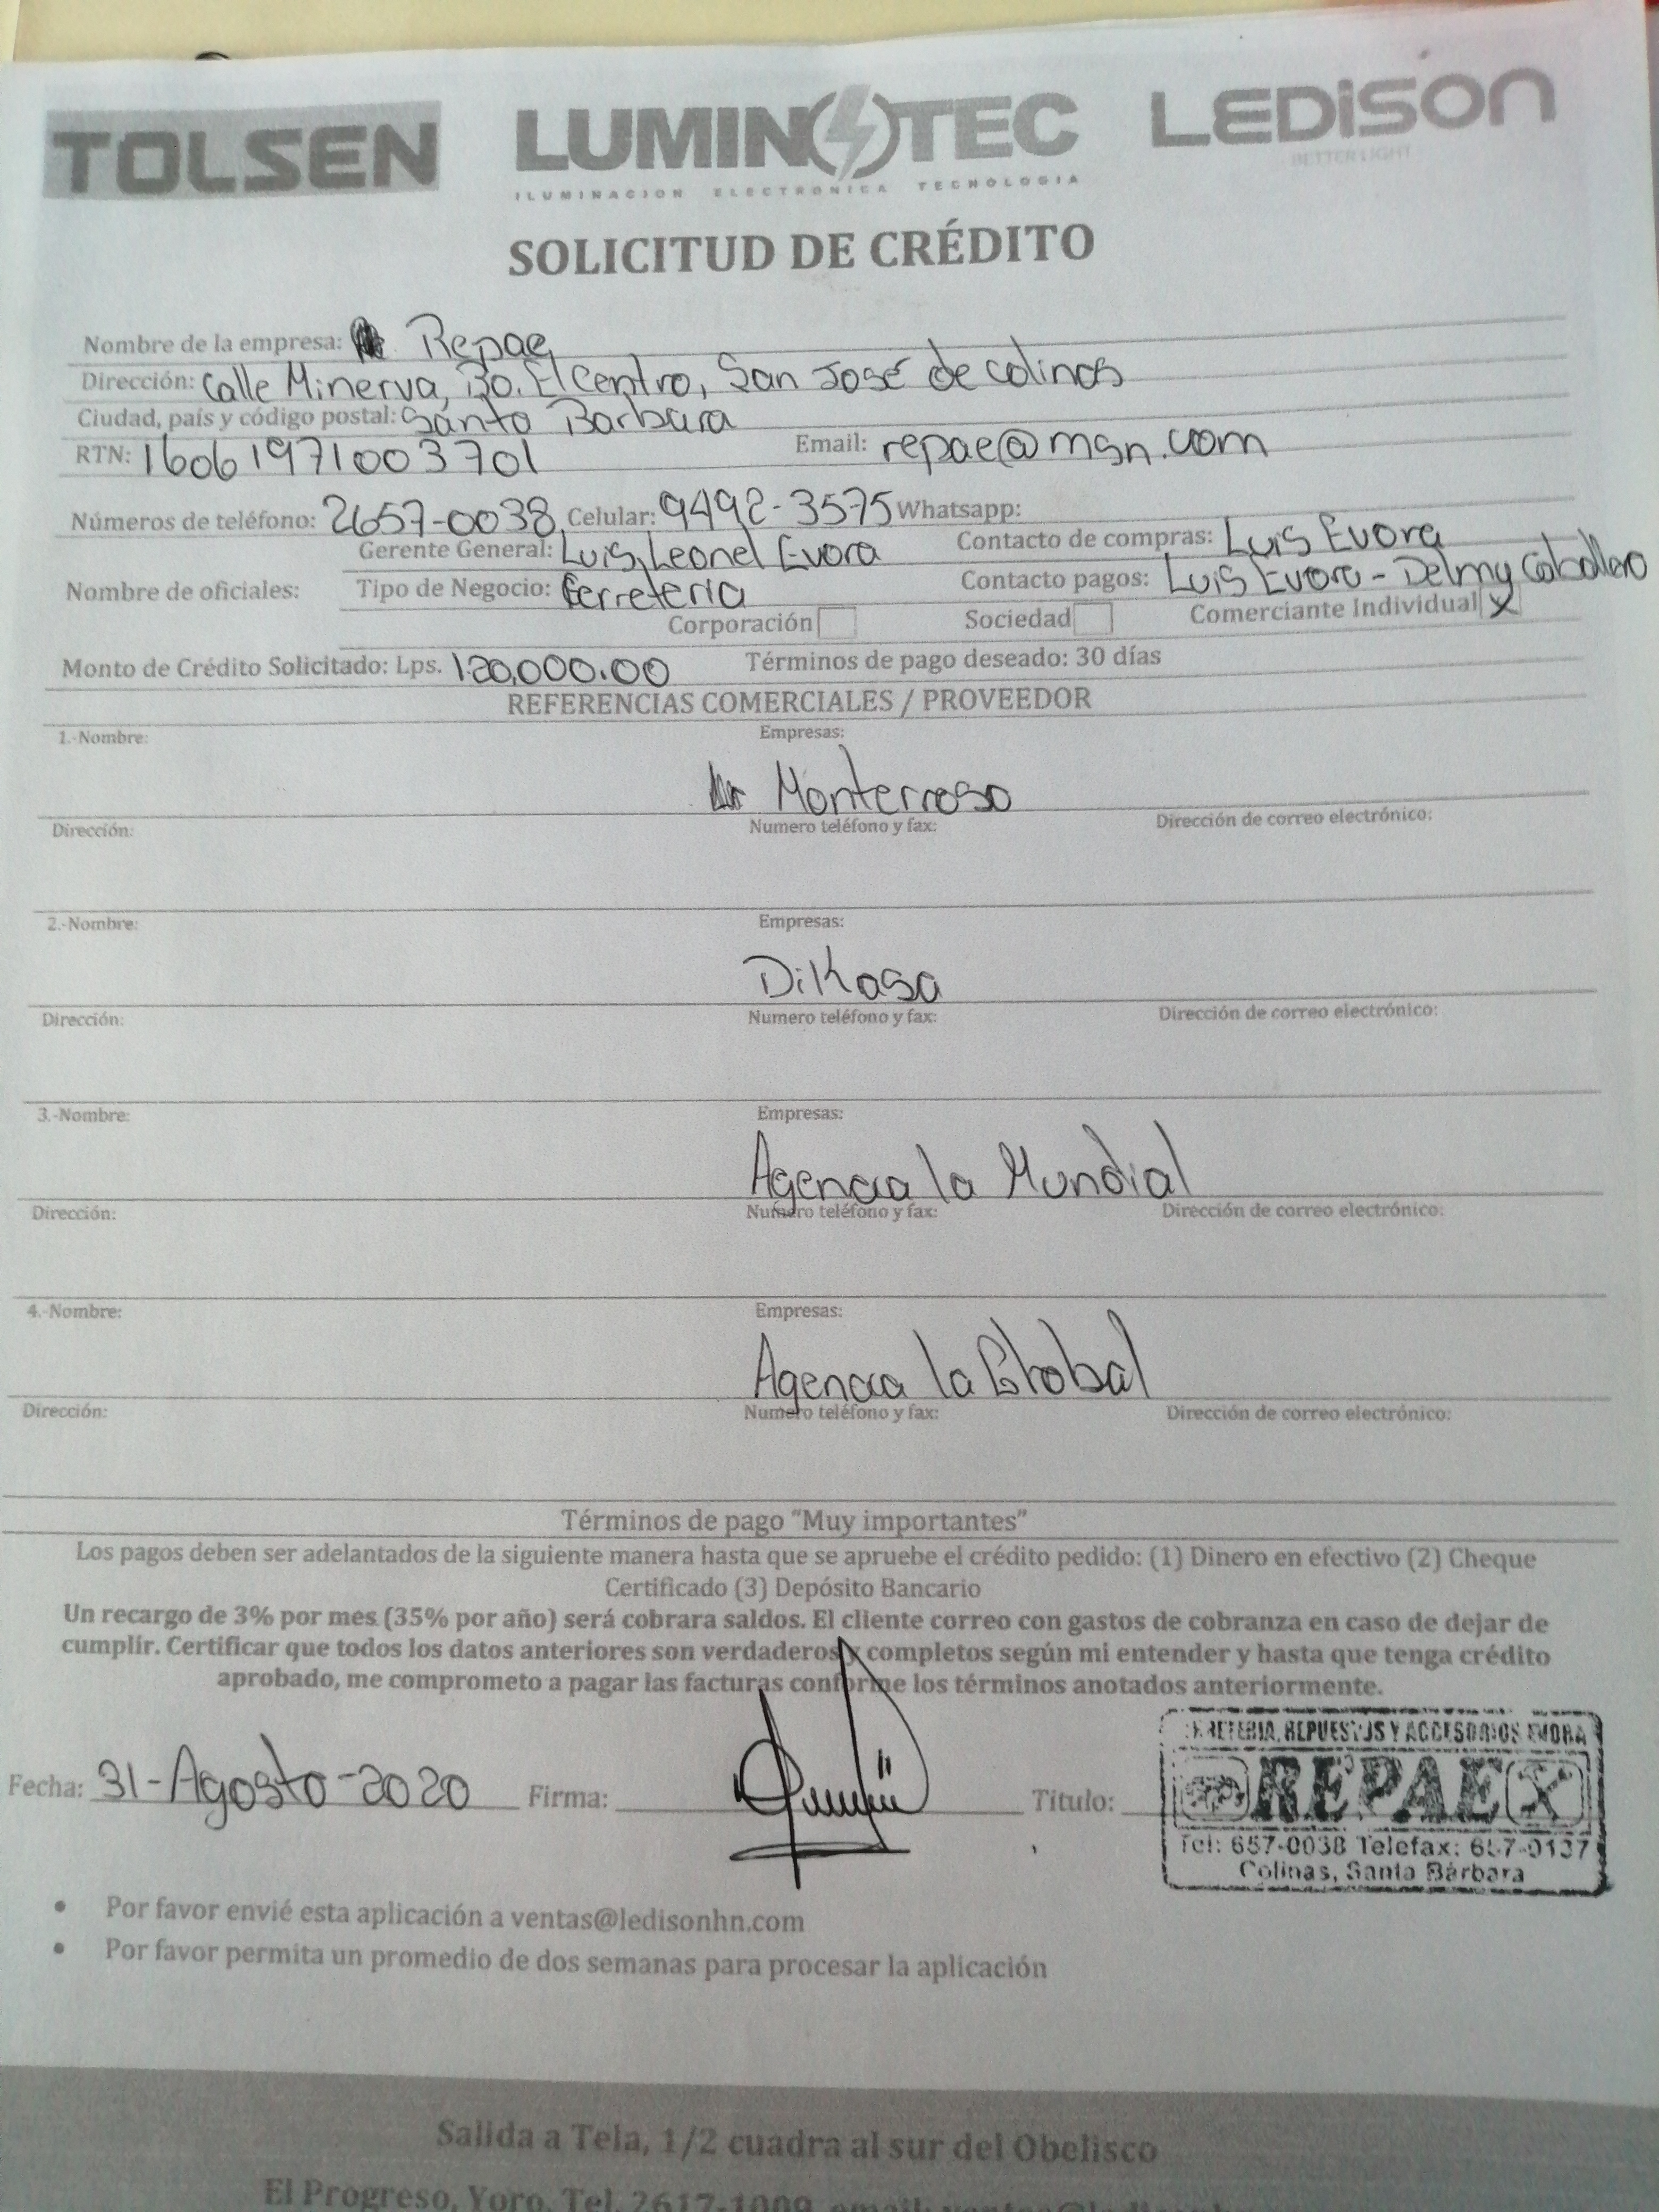 TOLSEN LUMINOTEC LEDISON
ILUMINACION ELECTRONICA TECNOLOGIA BETTER LIGHT
SOLICITUD DE CRÉDITO
Nombre de la empresa: Repae
Dirección: Calle Minerva, Bo. El Centro, San José de Colinas
Ciudad, país y código postal: Santa Barbara
RTN: 16061971003701 Email: repae@msn.com
Números de teléfono: 2657-0038 Celular: 9492-3575 Whatsapp:
Gerente General: Luis Leonel Evora Contacto de compras: Luis Evora
Nombre de oficiales: Tipo de Negocio: Ferreteria Contacto pagos: Luis Evora - Delmy Caballero
Corporación Sociedad Comerciante Individual X
Monto de Crédito Solicitado: Lps. 120,000.00 Términos de pago deseado: 30 días
REFERENCIAS COMERCIALES / PROVEEDOR
1.-Nombre: Empresas:
Monterroso
Dirección: Numero teléfono y fax: Dirección de correo electrónico:
2.-Nombre: Empresas:
Dikasa
Dirección: Numero teléfono y fax: Dirección de correo electrónico:
3.-Nombre: Empresas:
Agencia la Mundial
Dirección: Numero teléfono y fax: Dirección de correo electrónico:
4.-Nombre: Empresas:
Agencia la Global
Dirección: Numero teléfono y fax: Dirección de correo electrónico:
Términos de pago "Muy importantes"
Los pagos deben ser adelantados de la siguiente manera hasta que se apruebe el crédito pedido: (1) Dinero en efectivo (2) Cheque
Certificado (3) Depósito Bancario
Un recargo de 3% por mes (35% por año) será cobrara saldos. El cliente correo con gastos de cobranza en caso de dejar de
cumplir. Certificar que todos los datos anteriores son verdaderos y completos según mi entender y hasta que tenga crédito
aprobado, me comprometo a pagar las facturas conforme los términos anotados anteriormente.
Fecha: 31-Agosto-2020 Firma: Titulo:
FERRETERIA, REPUESTOS Y ACCESORIOS EVORA
REPAE
Tel: 657-0038 Telefax: 657-0137
Colinas, Santa Bárbara
• Por favor envié esta aplicación a ventas@ledisonhn.com
• Por favor permita un promedio de dos semanas para procesar la aplicación
Salida a Tela, 1/2 cuadra al sur del Obelisco
El Progreso, Yoro. Tel. 2617-1009